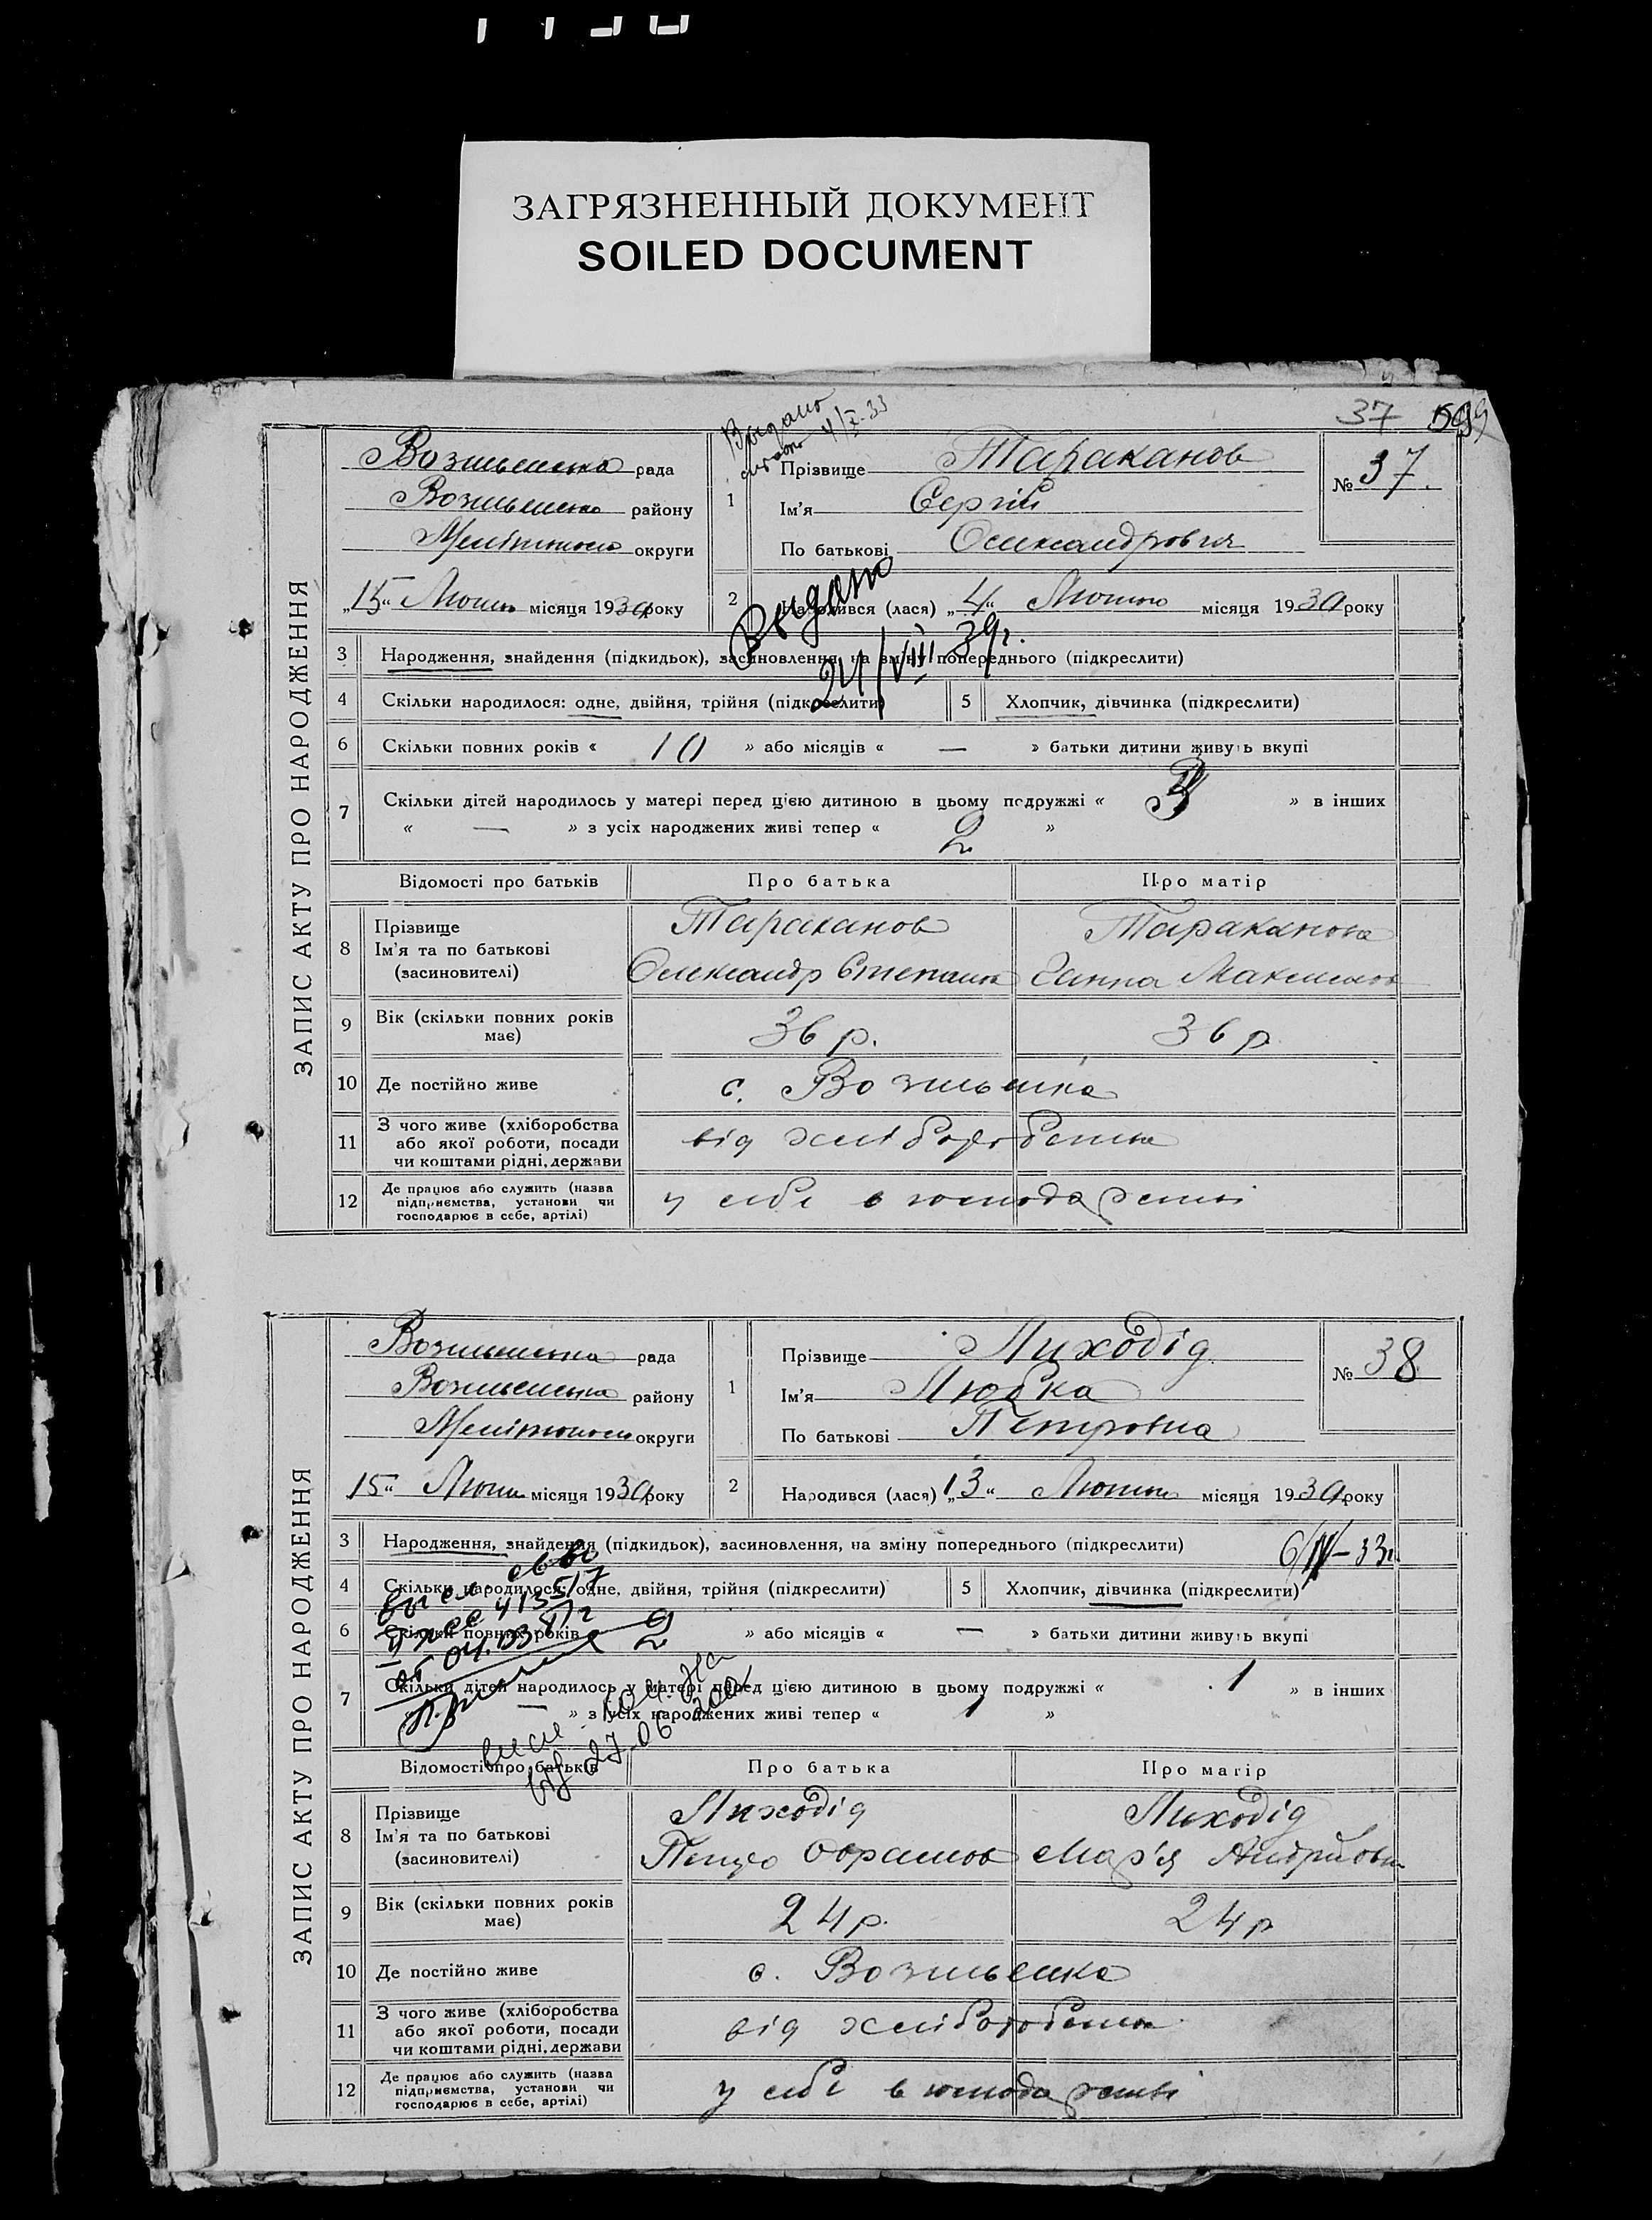 ЗАГРЯЗНЕННЫЙ ДОКУМЕНТ
SOILED DOCUMENT
37
ЗАПИС АКТУ ПРО НАРОДЖЕННЯ
рада
району
округи
„15“ місяця 1930 року
Выдано
4/X-33
1
Прізвище Тараканов
Ім'я Сергій
По батькові
№ 37.
2
Народився (лася) „4“ Лютого місяця 1930 року
Выдано
24/VIII 39г.
3 Народження, знайдення (підкидьок), засиновлення на зміну попереднього (підкреслити)
4 Скільки народилося: одне, двійня, трійня (підкреслити)
5 Хлопчик, дівчинка (підкреслити)
6 Скільки повних років « 10 » або місяців « — » батьки дитини живуть вкупі
7 Скільки дітей народилось у матері перед цією дитиною в цьому подружжі « 3 » в інших
« — » з усіх народжених живі тепер « 2 »
Відомості про батьків Про батька Про матір
8 Прізвище
Ім'я та по батькові
(засиновителі)
Тараканов
Олександр Степанов
Тараканова
Ганна Максимов
9 Вік (скільки повних років
має)
36 р. 36 р.
10 Де постійно живе
с.
11 З чого живе (хліборобства
або якої роботи, посади
чи коштами рідні, держави
від хліборобства
12 Де працює або служить (назва
підприємства, установи чи
господарює в себе, артілі)
у себе в господарстві
ЗАПИС АКТУ ПРО НАРОДЖЕННЯ
рада
району
округи
15“ місяця 1930 року
1
Прізвище Лиходід
Ім'я Любка
По батькові Петровна
№ 38
2
Народився (лася) „13“ Лютого місяця 1930 року
3 Народження, знайдення (підкидьок), засиновлення, на зміну попереднього (підкреслити)
6/IV-33г.
4 Скільки народилося: одне, двійня, трійня (підкреслити)
5 Хлопчик, дівчинка (підкреслити)
6 Скільки повних років 2 » або місяців « — » батьки дитини живуть вкупі
7 Скільки дітей народилось у матері перед цією дитиною в цьому подружжі « 1 » в інших
« — » з усіх народжених живі тепер « 1 »
Відомості про батьків Про батька Про матір
8 Прізвище
Ім'я та по батькові
(засиновителі)
Лиходід
Петро Обрамов
Лиходід
Мар'я Андрійовн
9 Вік (скільки повних років
має)
24 р. 24 р
10 Де постійно живе
с.
11 З чого живе (хліборобства
або якої роботи, посади
чи коштами рідні, держави
від хліборобства
12 Де працює або служить (назва
підприємства, установи чи
господарює в себе, артілі)
у себе в господарстві